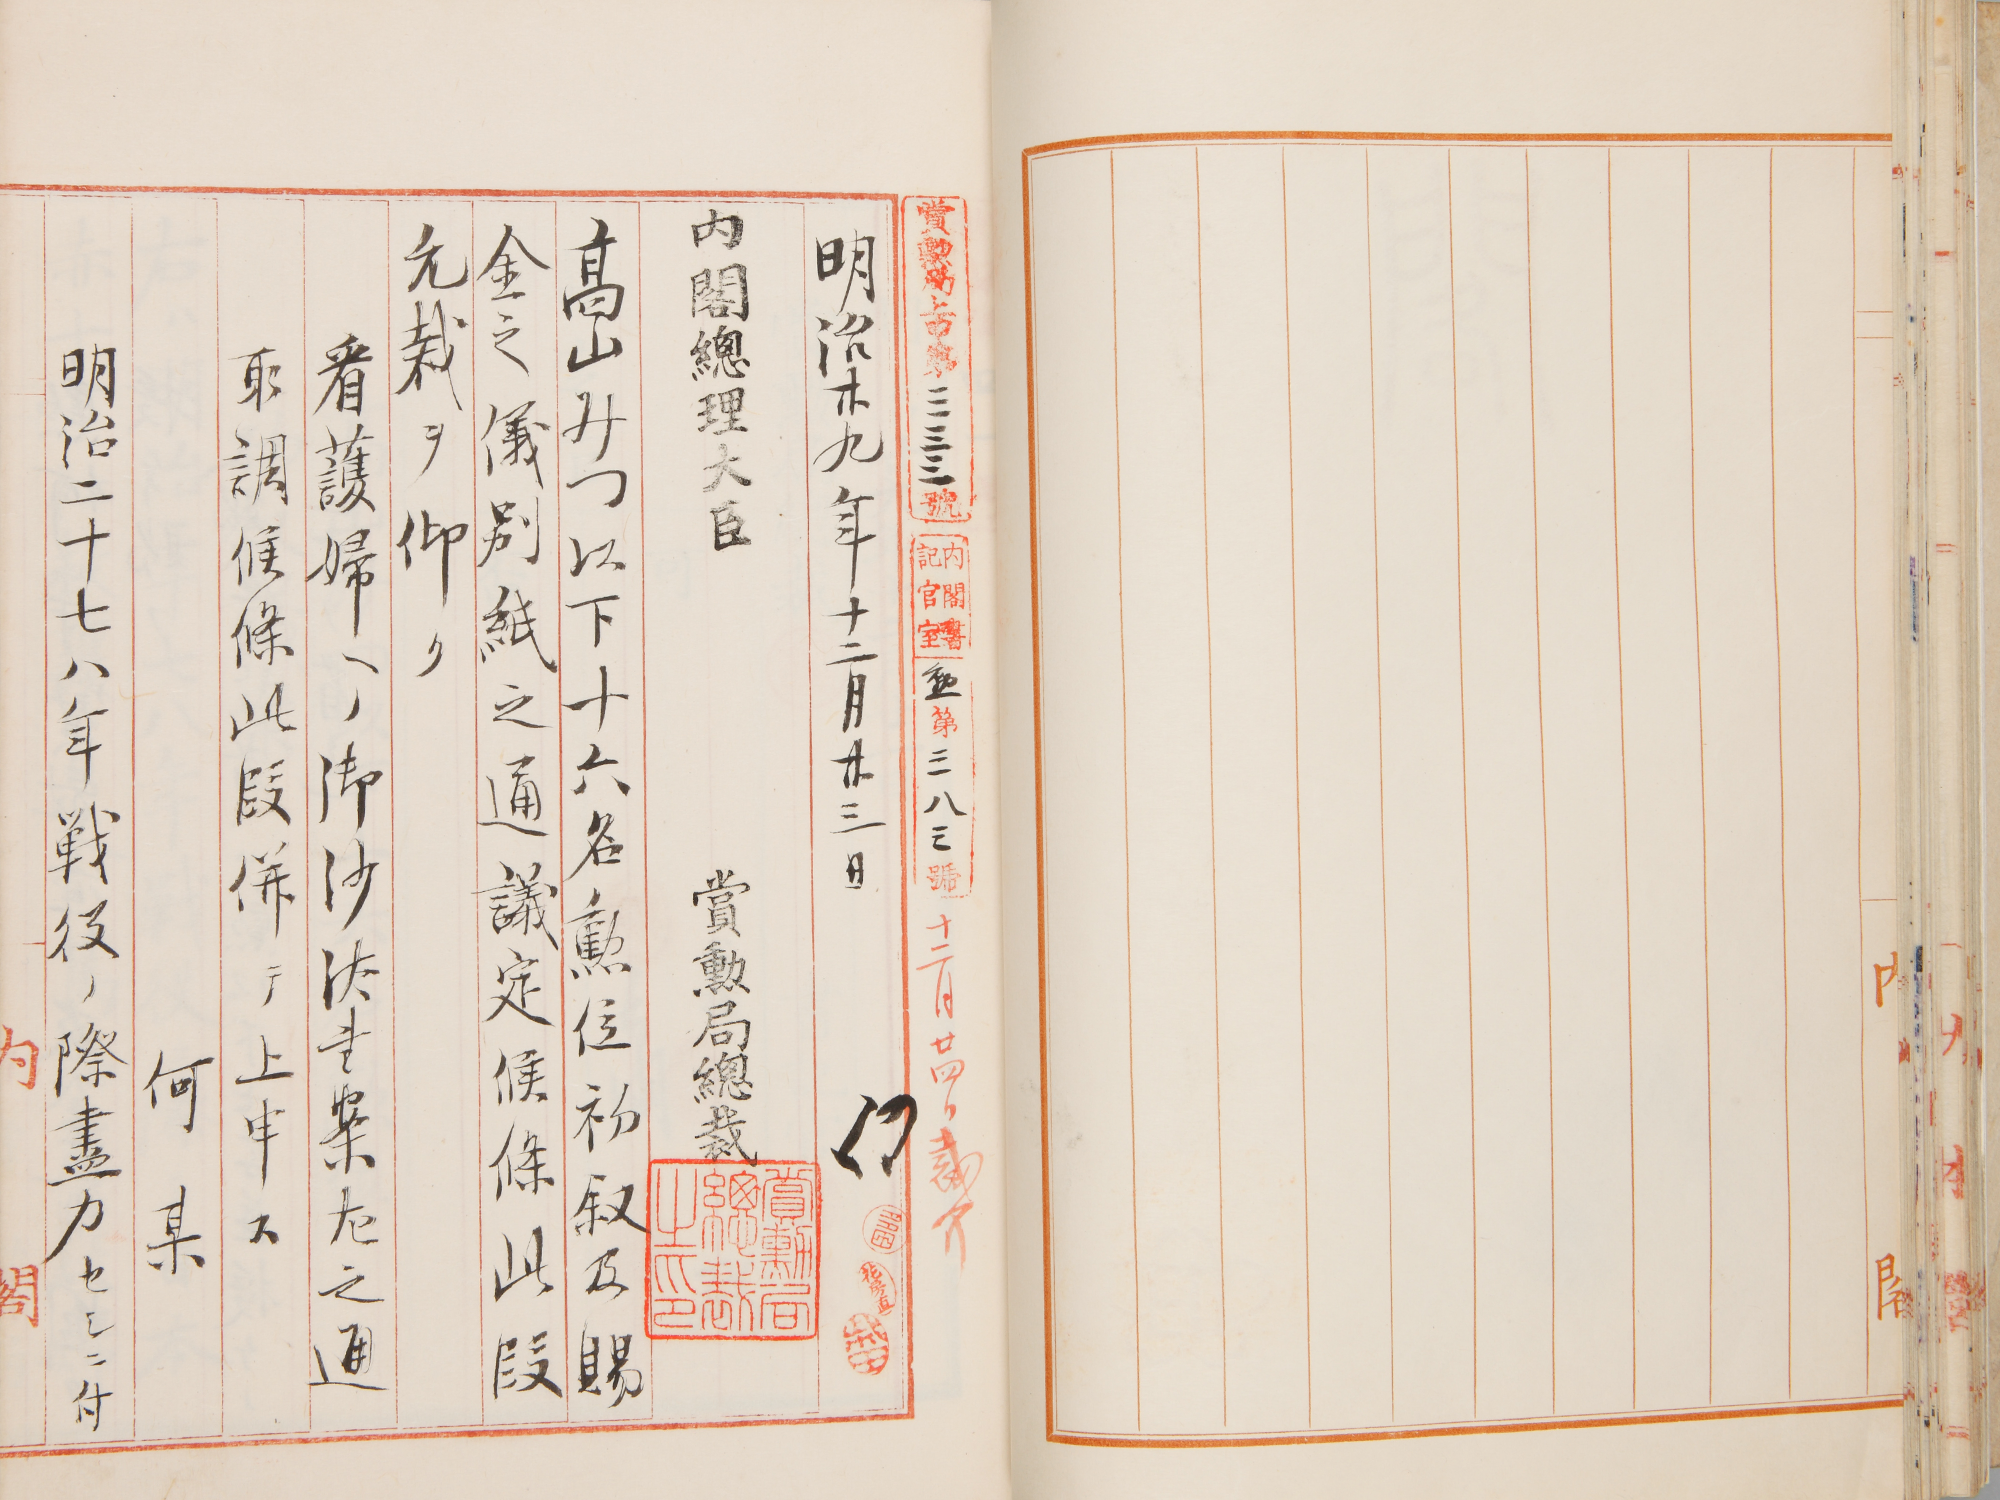 賞勲局上申第三三三號
内閣書記官室
勲第三八三號
十二月廿四日裁可
明治卅九年十二月廿三日
内閣總理大臣
賞勲局總裁
賞勲局總裁之印
髙山みつ以下十六名ノ勲位初叙及賜
金之儀別紙之通議定候條此段
允裁ヲ仰ク
看護婦ヘノ御沙汰書案左之通
取調候條此段併テ上申ス
何某
明治二十七八年戦役ノ際盡力セシニ付
内閣
内閣